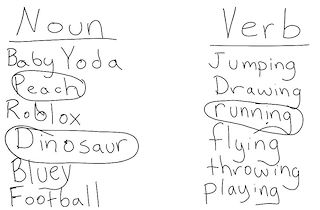 Noun
Baby Yoda
Peach
Roblox
Dinosaur
Bluey
Football
Verb
Jumping
Drawing
running
flying
throwing
playing